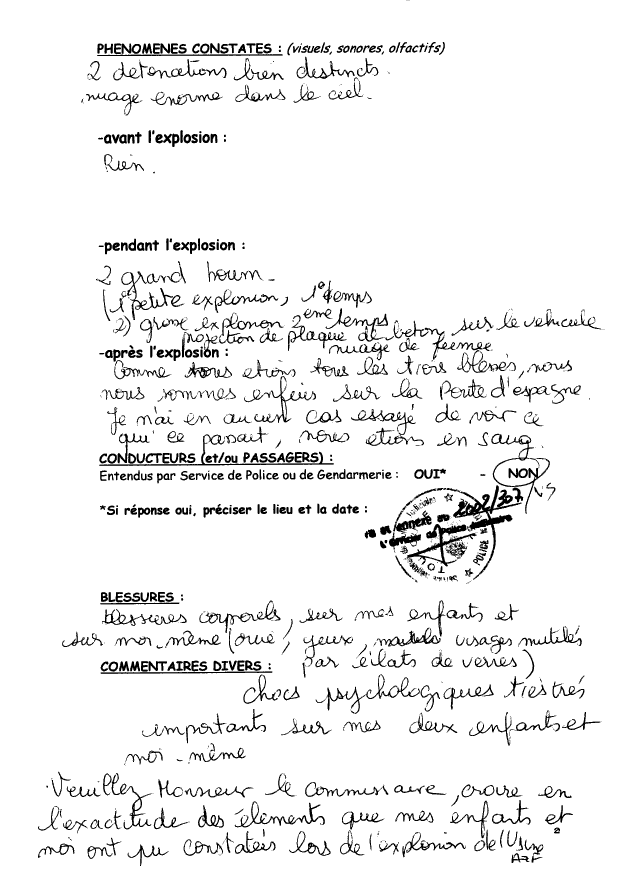 PHENOMENES CONSTATES : (visuels, sonores, olfactifs)
2 detonations bien destincts.
nuage enorme dans le ciel.
-avant l'explosion :
Rien.
-pendant l'explosion :
2 grand boum-
(1er petite explosion, 1er temps
2) grosse explosion 2eme temps
projection de plaque de beton sur le vehicule
nuage de fumee
-après l'explosion :
Comme tous etions tous les trois blessés, nous
nous sommes enfuis sur la Route d'espagne.
Je n'ai en aucun cas essayé de voir ce
qui ce passait, nous etions en sang.
CONDUCTEURS (et/ou PASSAGERS) :
Entendus par Service de Police ou de Gendarmerie : OUI* - NON
*Si réponse oui, préciser le lieu et la date :
ANNEXE AU 2002/307/VS
L'Officier de Police Judiciaire
POLICE
BLESSURES :
blessures corporels, sur mes enfants et
sur moi-même (ouie, yeux, visages mutilés
par éclats de verres)
COMMENTAIRES DIVERS :
chocs psychologiques très très
importants sur mes deux enfants et
moi-même
Veuillez Monsieur le Commissaire, croire en
l'exactitude des éléments que mes enfants et
moi ont pu constatés lors de l'explosion de l'Usine
AZF
2